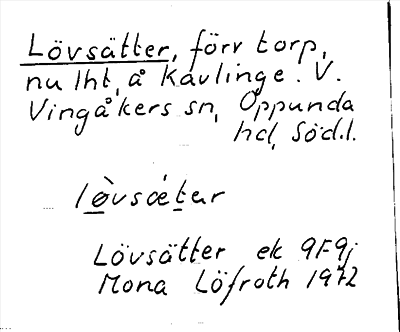 Lövsätter, förv torp,
nu lht, å Kävlinge. V.
Vingåkers sn, Oppunda
hd, Söd.l.
lø̀vsǽtar
Lövsätter ek 9F9j
Mona Löfroth 1972